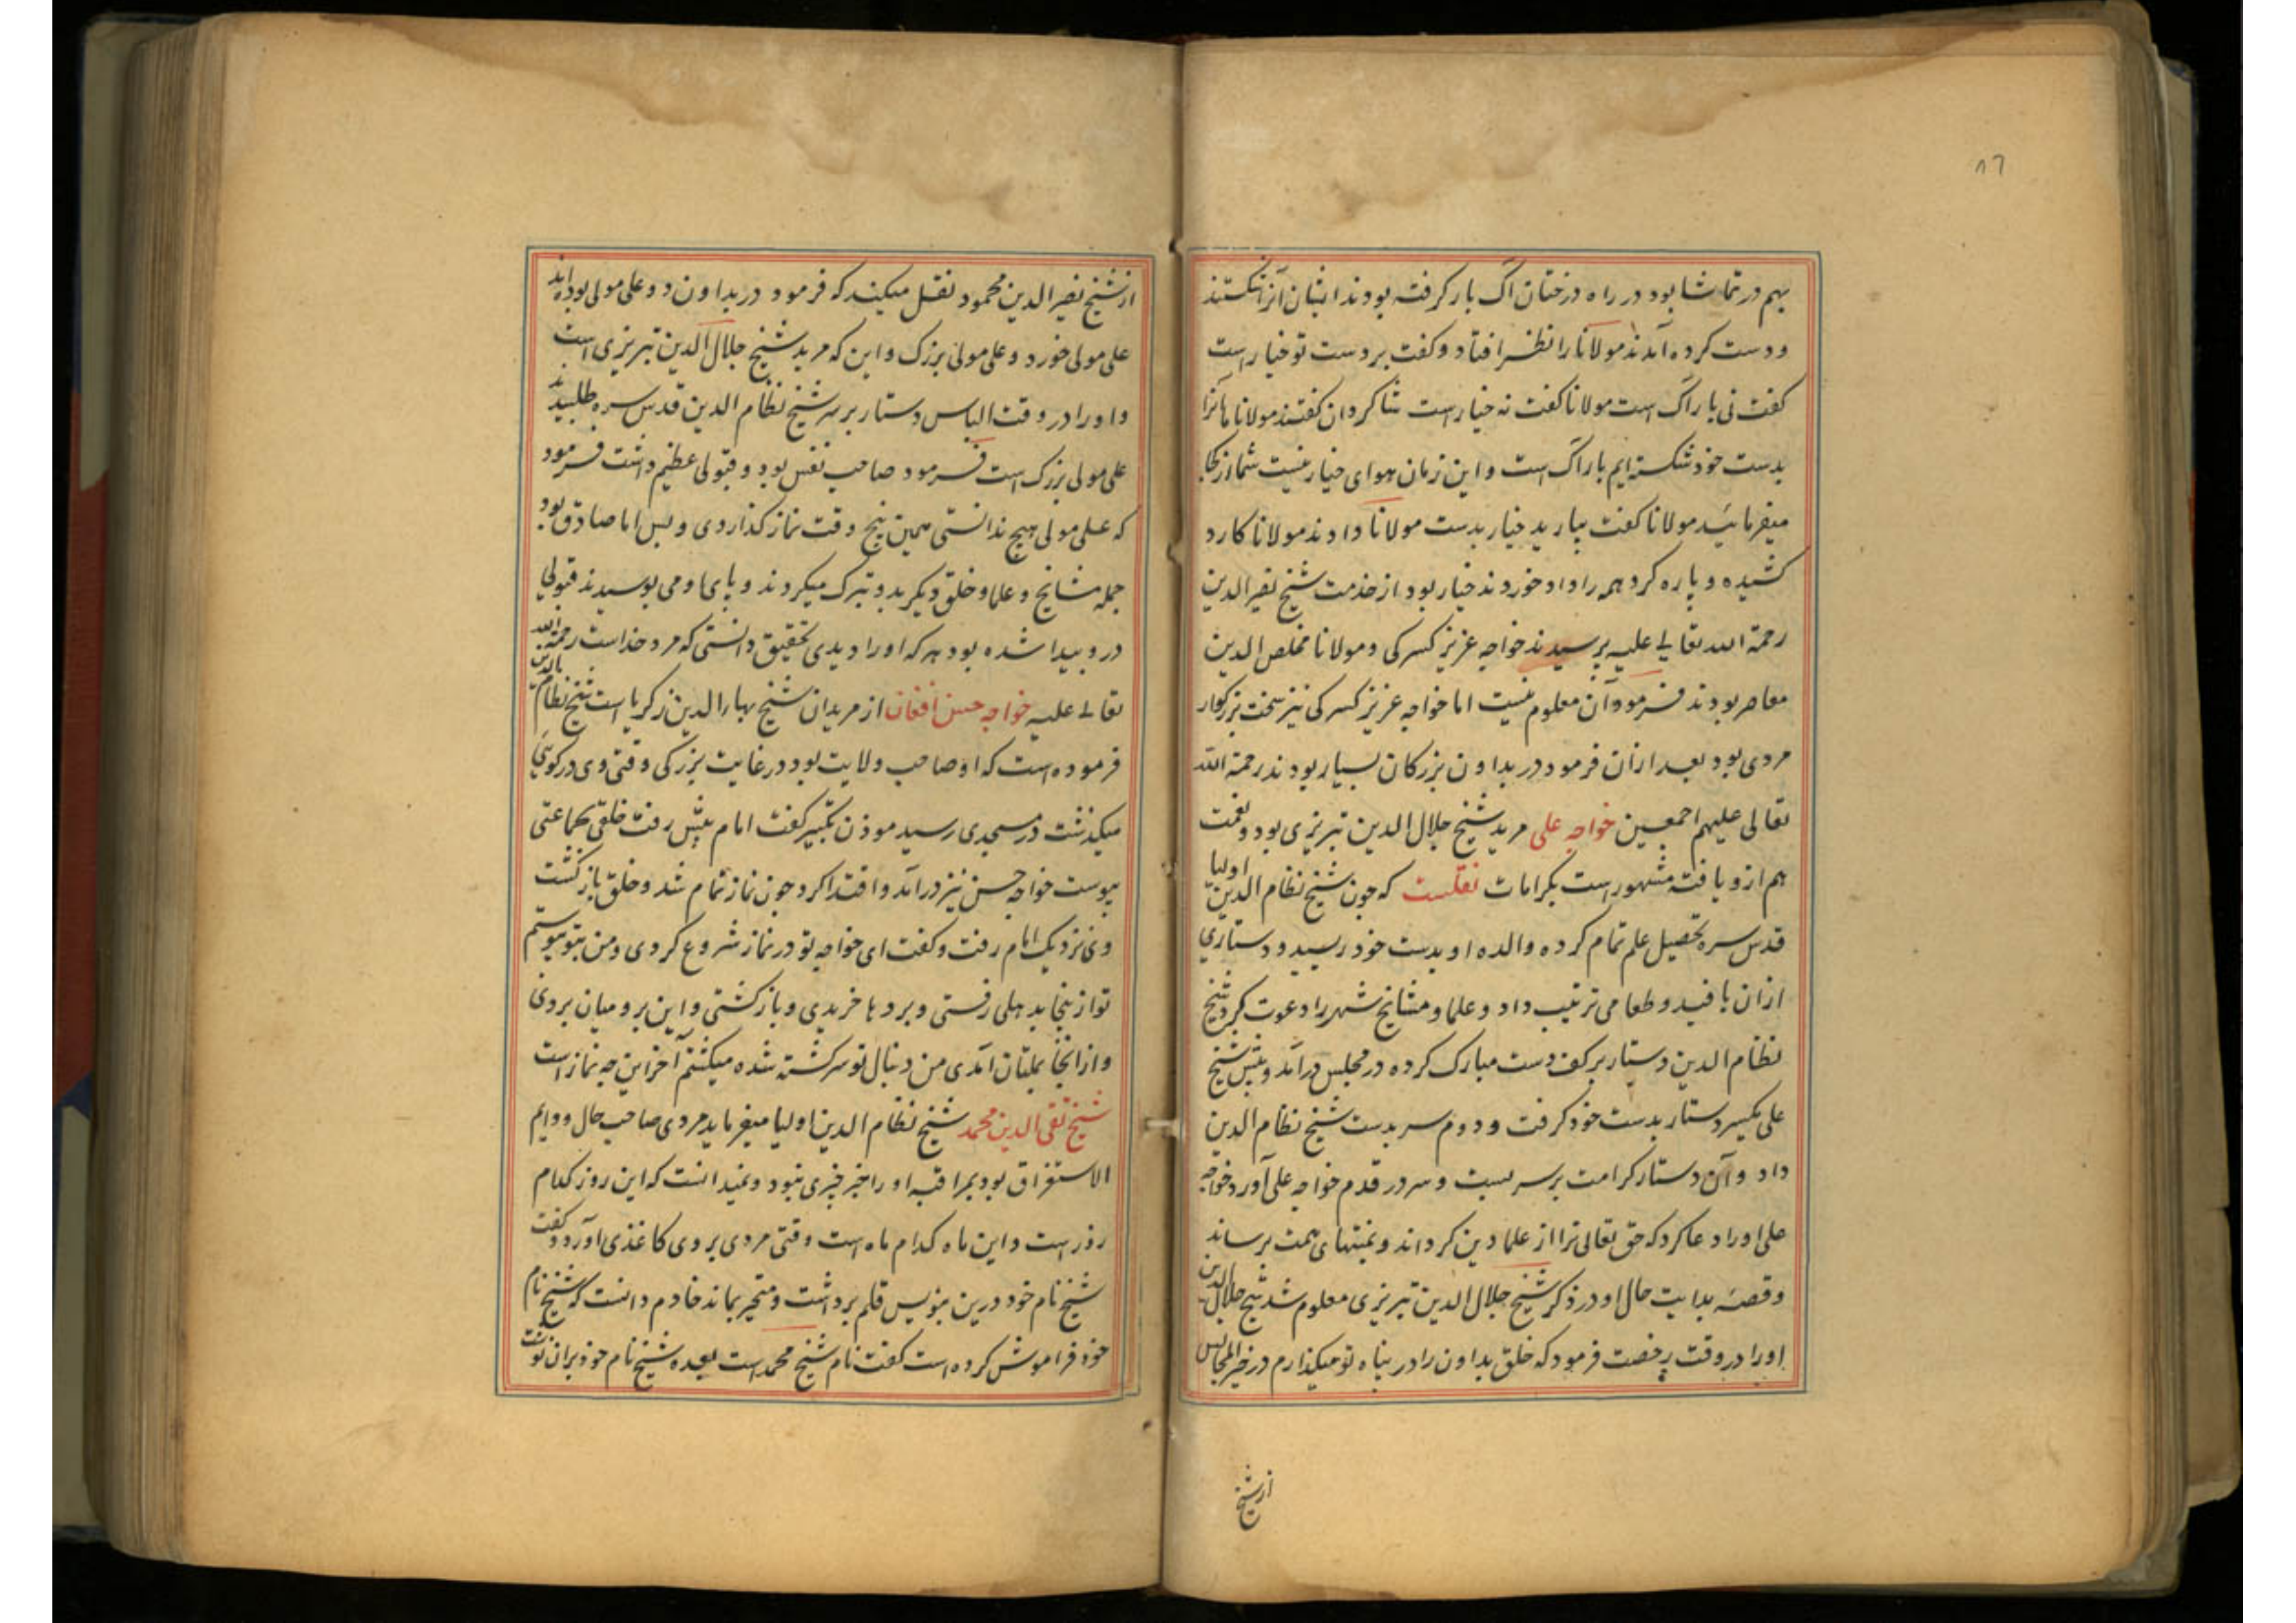 ۸۶
بهم در تماشا بود در راه درختان اک بار کرفته بودند ایشان آنرا شکستند
و دست کرده آمدند مولانا را نظر افتاد و کفت بر دست تو خیار است
کفت نی بار اک است مولانا کفت نه خیار است شاکردان کفتند مولانا ما آنرا
بدست خود شکسته ایم بار اک است و این زمان هوای خیار نیست شما از کجا
میفرمائید مولانا کفت بیارید خیار بدست مولانا دادند مولانا کارد
کشیده و پاره کرد همه را داد خوردند خیار بود از خدمت شیخ نصیر الدین
رحمة الله تعالی علیه پرسیدند خواجه عزیز کسرکی و مولانا مخلص الدین
معاصر بودند فرمود آن معلوم نیست اما خواجه عزیز کسرکی نیز سخت بزرکوار
مردی بود بعد ازان فرمود در بداون بزرکان بسیار بودند رحمة الله
تعالی علیهم اجمعین خواجه علی مرید شیخ جلال الدین تبریزی بود و نعمت
هم ازو یافته مشهور است بکرامات نقلست که چون شیخ نظام الدین اولیا
قدس سره تحصیل علم تمام کرده والده او بدست خود رسید و دستاری
ازان بافید و طعامی ترتیب داد و علما و مشایخ شهر را دعوت کرد شیخ
نظام الدین دستار بر کف دست مبارک کرده در مجلس درآمد و پیش شیخ
علی یکسر دستار بدست خود کرفت و دوم سر بدست شیخ نظام الدین
داد و آن دستار کرامت بر سر بست و سر در قدم خواجه علی آورد خواجه
علی او را دعا کرد که حق تعالی ترا از علما دین کرداند و بمنتهای همت برساند
و قصه بدایت حال او در ذکر شیخ جلال الدین تبریزی معلوم شد شیخ جلال الدین
او را در وقت رخصت فرمود که خلق بداون را در پناه تو میکذارم در خیر المجالس
از شیخ
از شیخ نصیر الدین محمود نقل میکند که فرمود در بداون دو علی مولی بوده اند
علی مولی خورد و علی مولی بزرک و این که مرید شیخ جلال الدین تبریزی است
و او را در وقت الباس دستار بر سر شیخ نظام الدین قدس سره طلبیدند
علی مولی بزرک است فرمود صاحب نفس بود و قبولی عظیم داشت فرمود
که علی مولی هیچ ندانستی همین پنج وقت نماز کذاردی و بس اما صادق بود
جمله مشایخ و علما و خلق دیکر بدو تبرک میکردند و پای او می بوسیدند قبولی
درو پیدا شده بود هر که او را دیدی تحقیق دانستی که مرد خداست رحمة الله
تعالی علیه خواجه حسن افغان از مریدان شیخ بهاء الدین زکریا است شیخ نظام الدین
فرموده است که او صاحب ولایت بود در غایت بزرکی وقتی وی در کوئی
میکذشت در مسجدی رسید موذن تکبیر کفت امام پیش رفت خلقی بجماعتی
پیوست خواجه حسن نیز درآمد و اقتدا کرد چون نماز تمام شد و خلق بازکشت
وی نزدیک امام رفت و کفت ای خواجه تو در نماز شروع کردی و من بتو پیوستم
تو از ینجا بدهلی رفتی و بردها خریدی و بازکشتی و این بر و میان بردی
و از انجا بملتان آمدی من دنبال تو سرکشته شده میکشتم آخر این چه نماز است
شیخ تقی الدین محمد شیخ نظام الدین اولیا میفرماید مردی صاحب حال و دوایم
الاستغراق بود بمراقبه او را خبر چیزی نبود و نمیدانست که این روز کدام
روز است و این ماه کدام ماه است وقتی مردی بروی کاغذی آورد و کفت
شیخ نام خود درین بنویس قلم برداشت و متحیر بماند خادم دانست که شیخ نام
خود فراموش کرده است کفت نام شیخ محمد است بعده شیخ نام خود بران نوشت